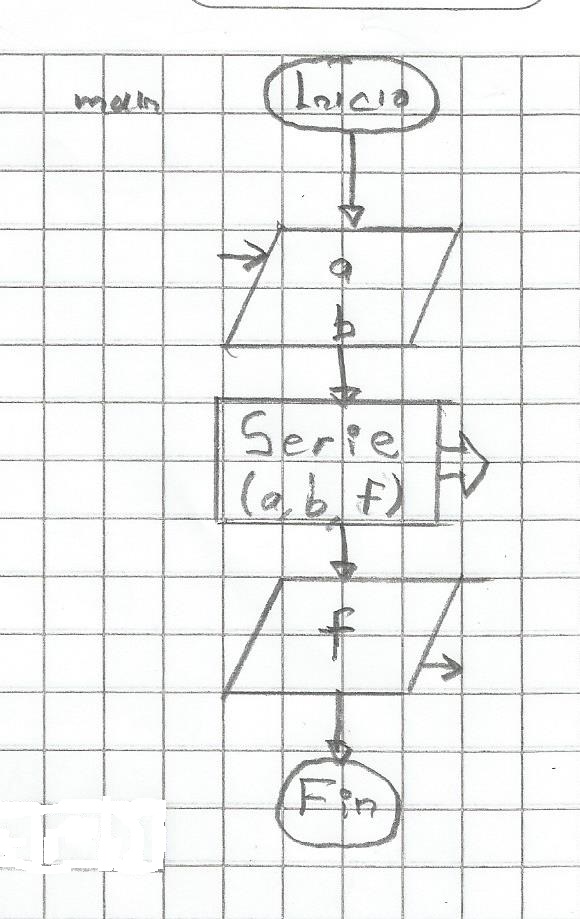 main
Inicio
a
b
Serie
(a, b, f)
f
Fin